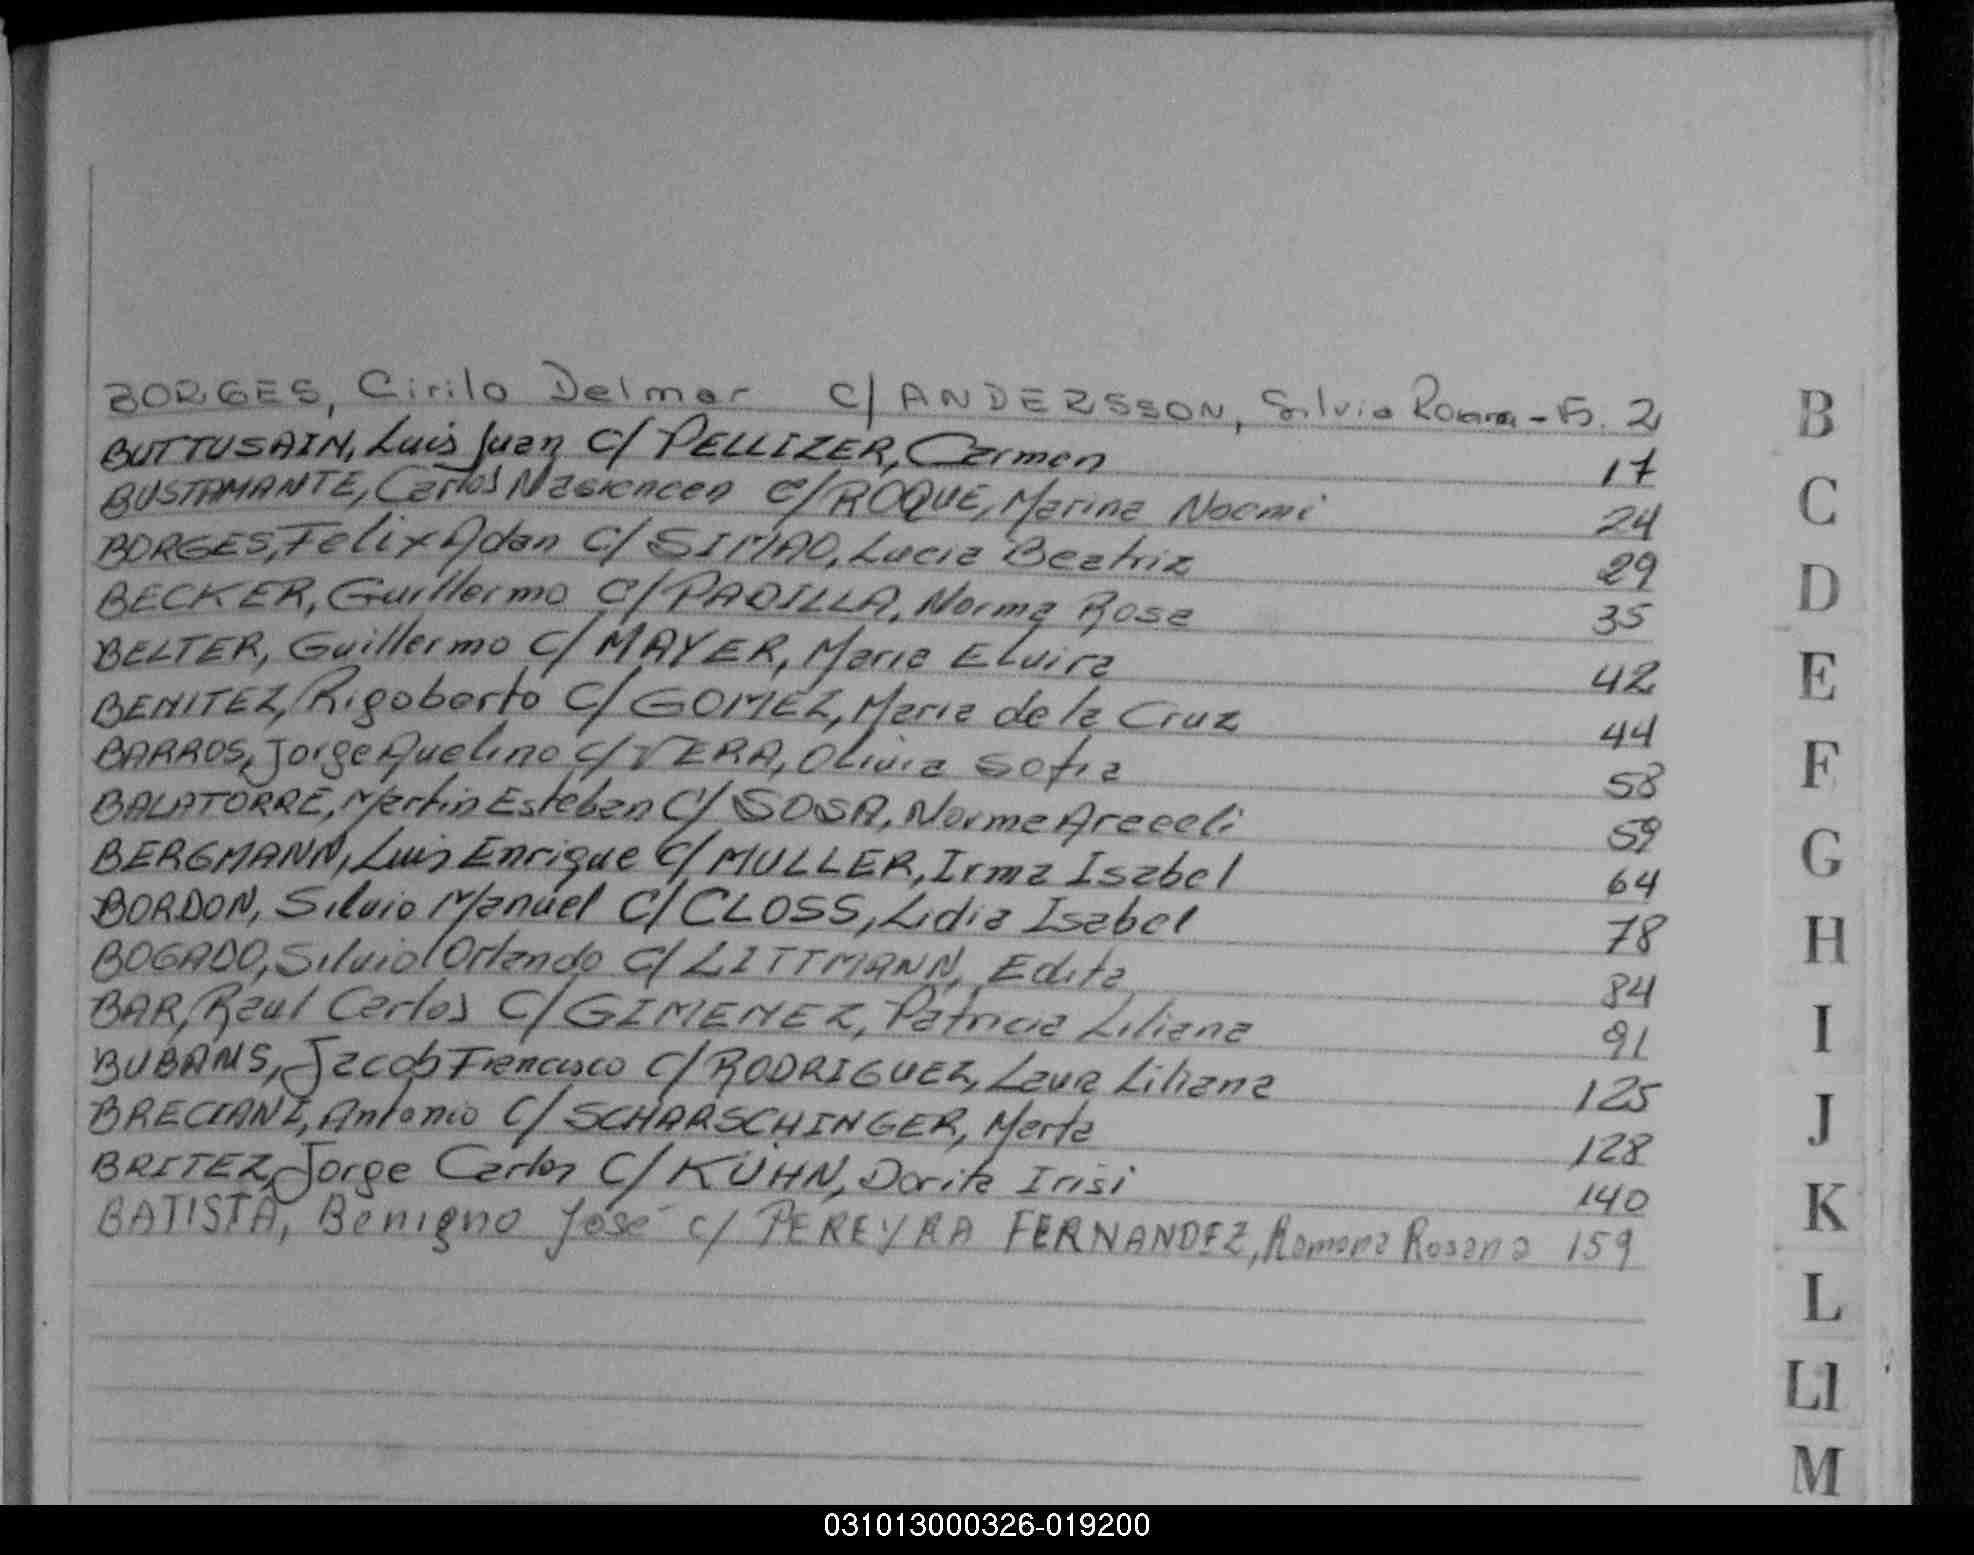 BORGES, Cirilo Delmar c/ ANDERSSON, Silvia - Fs. 2
BUTTUSAIN, Luis Juan C/ PELLIZER, Carmen 17
BUSTAMANTE, Carlos C/ ROQUE, Marina Noemi 24
BORGES, Felix Adan C/ SIMAO, Lucia Beatriz 29
BECKER, Guillermo C/ PADILLA, Norma Rosa 35
BELTER, Guillermo C/ MAYER, Maria Elvira 42
BENITEZ, Rigoberto C/ GOMEZ, Maria de la Cruz 44
BARROS, Jorge Avelino C/ VERA, Olivia Sofia 58
BALATORRE, Martin Esteban C/ SOSA, Norma Araceli 59
BERGMANN, Luis Enrique C/ MULLER, Irma Isabel 64
BORDON, Silvio Manuel C/ CLOSS, Lidia Isabel 78
BOGADO, Silvio Orlando C/ LITTMANN, Edita 84
BAR, Raul Carlos C/ GIMENEZ, Patricia Liliana 91
BUBANS, Jacob Francisco C/ RODRIGUEZ, Laura Liliana 125
BRECIANI, Antonio C/ SCHARSCHINGER, Marta 128
BRITEZ, Jorge Carlos C/ KÜHN, Dorita Irisi 140
BATISTA, Benigno José c/ PEREYRA FERNANDEZ, Ramona Rosana 159
B
C
D
E
F
G
H
I
J
K
L
Ll
M
031013000326-019200